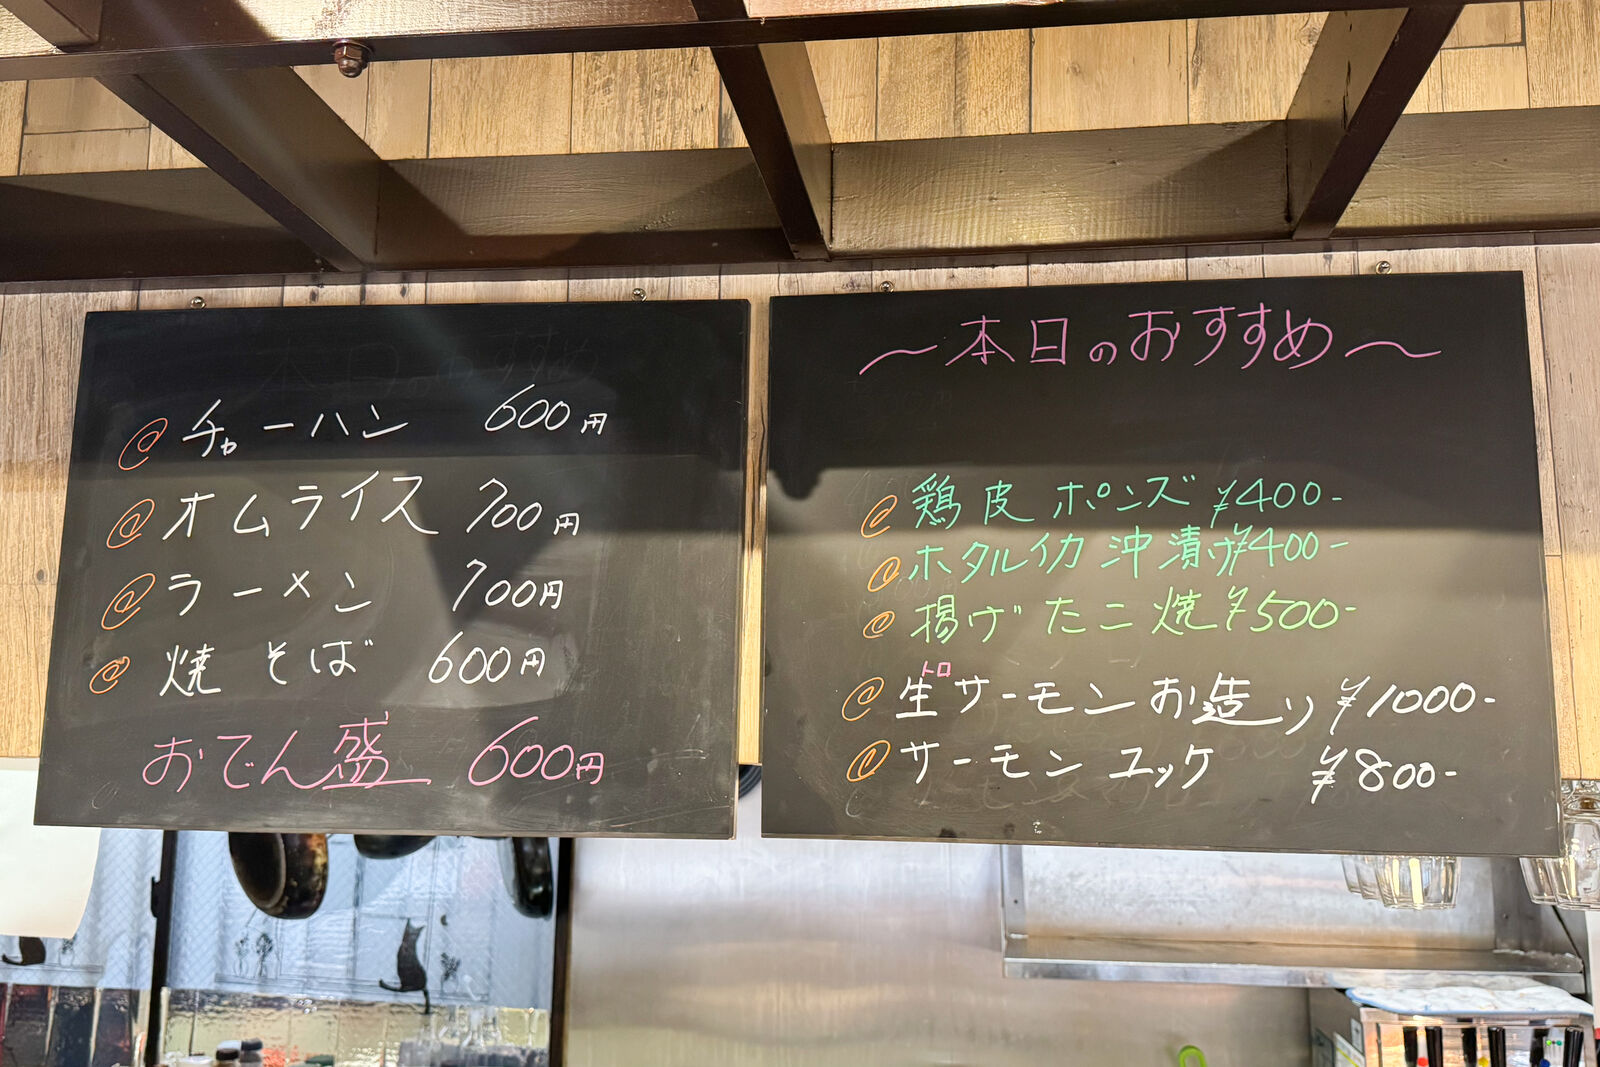 @ チャーハン 600円
@ オムライス 700円
@ ラーメン 700円
@ 焼そば 600円
おでん盛 600円
～本日のおすすめ～
@ 鶏皮ポンズ ¥400-
@ ホタルイカ沖漬け¥400-
@ 揚げたこ焼¥500-
トロ
@ 生サーモンお造り¥1000-
@ サーモンユッケ ¥800-